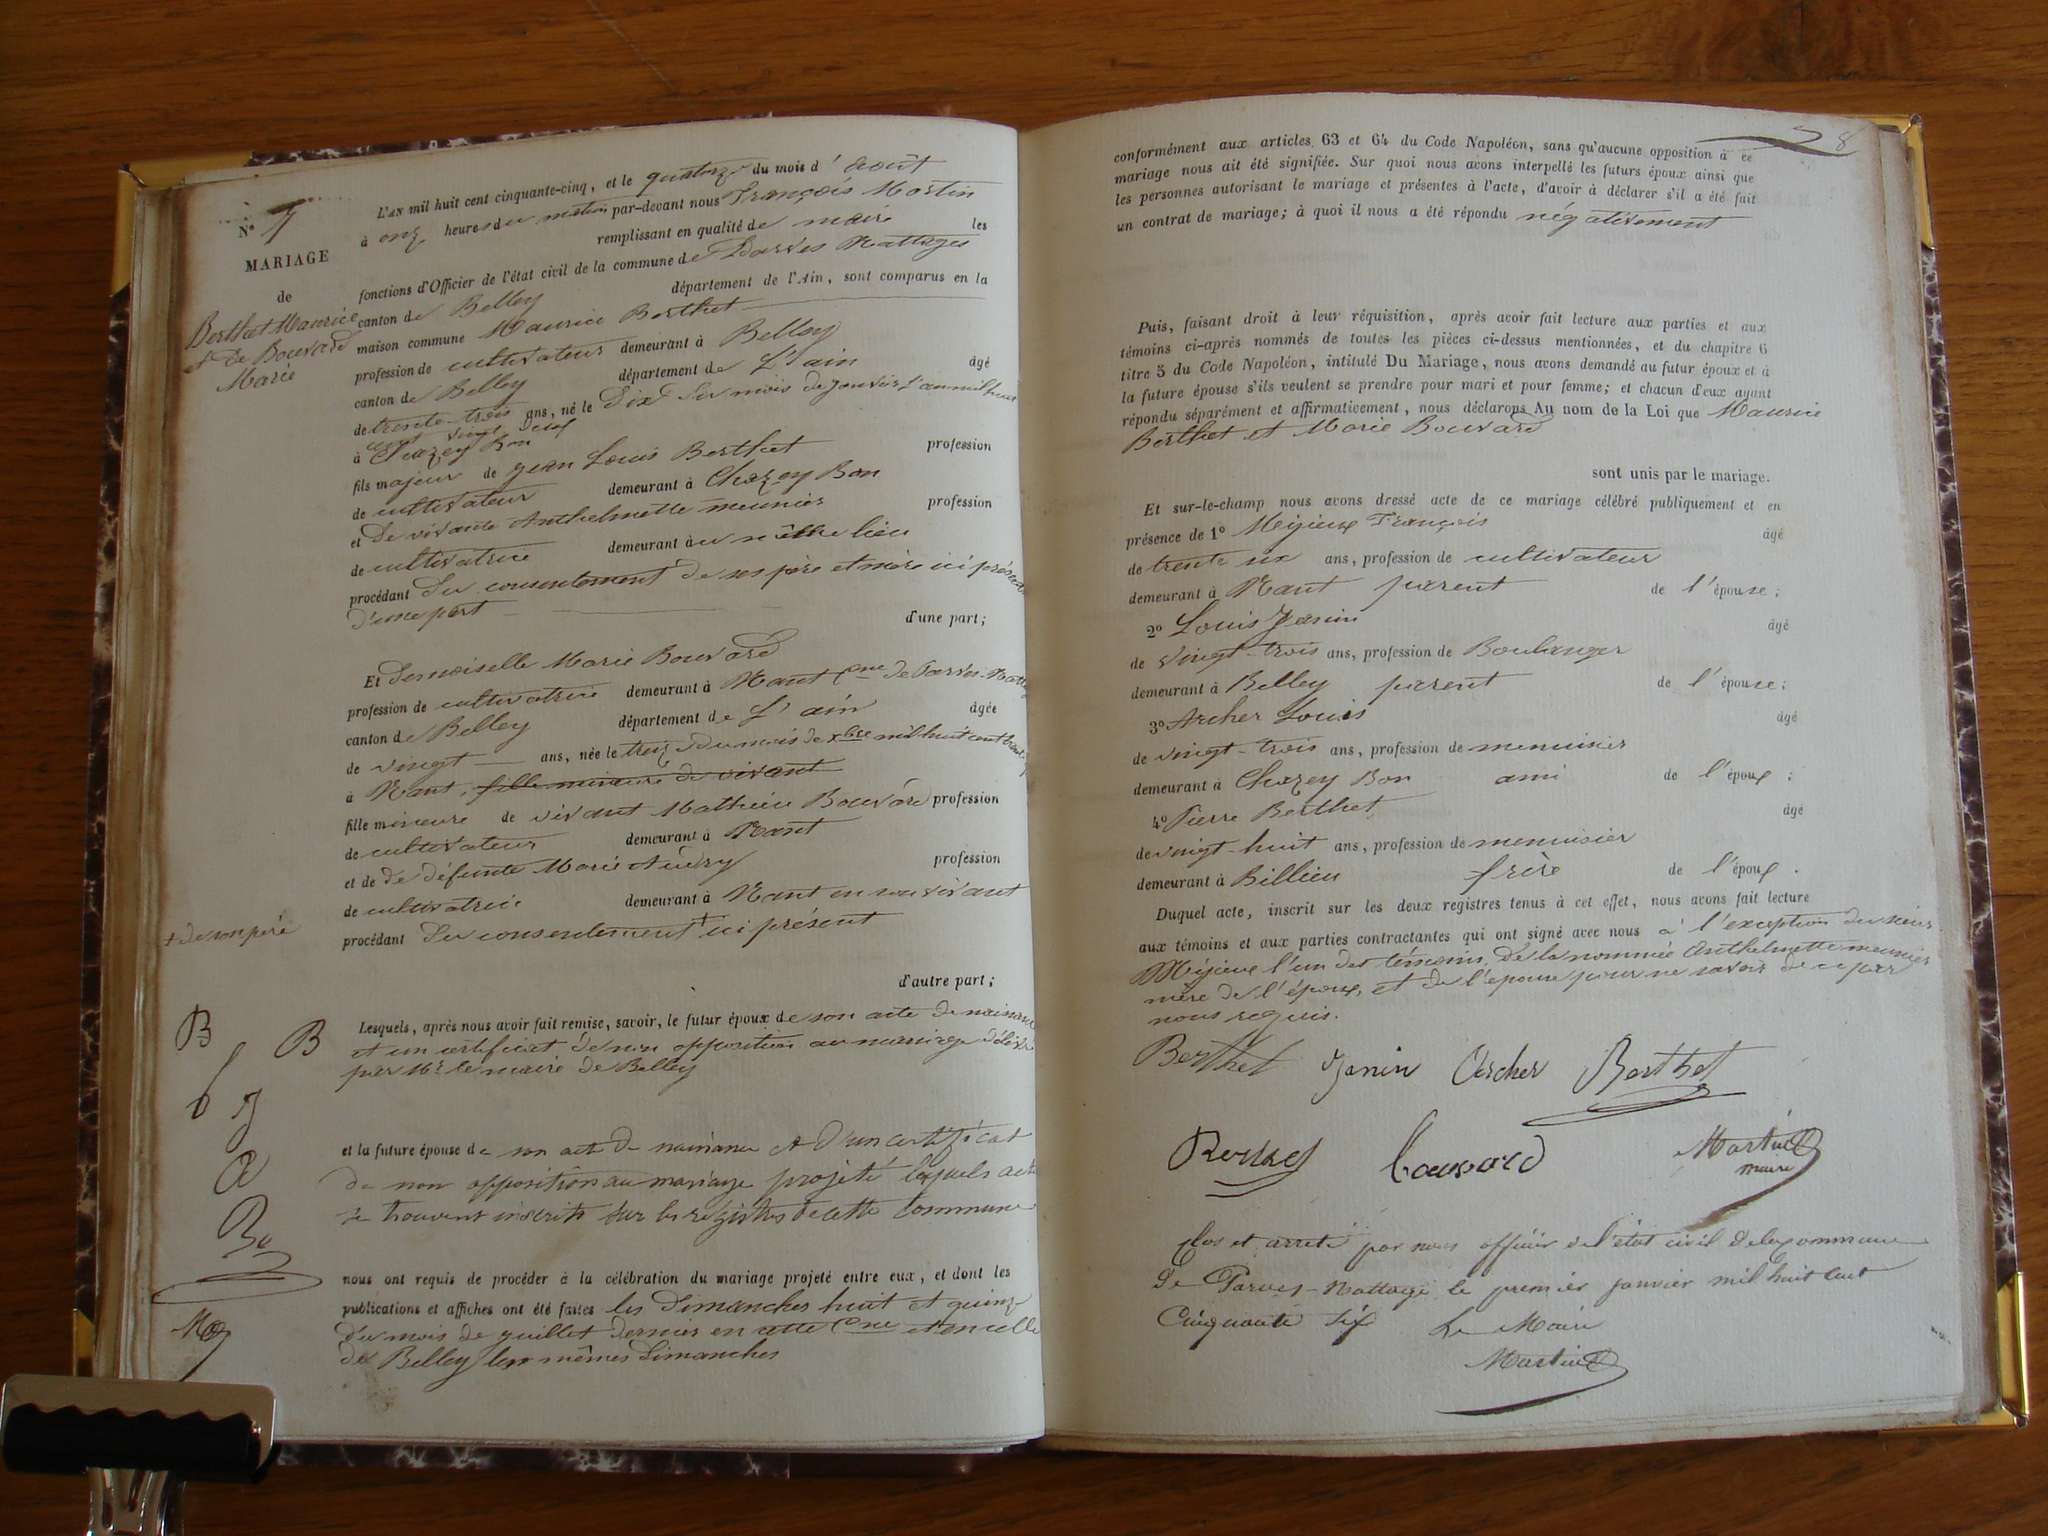 N° 7
MARIAGE
de
Berthet Maurice
et De Bouvard
Marie
L'AN mil huit cent cinquante-cinq, et le quatorze du mois d'août
à onze heures du matin par-devant nous François Martin
remplissant en qualité de maire les
fonctions d'Officier de l'état civil de la commune de Parves Nattages
canton de Belley département de l'Ain, sont comparus en la
maison commune Maurice Berthet
profession de cultivateur demeurant à Belley
canton de Belley département de L'ain âgé
de trente-trois ans, né le Dix du mois de janvier l'an mil huit
cent vingt deux
à Chazey Bon
fils majeur de jean Louis Berthet profession
de cultivateur demeurant à Chazey Bon
et De vivante Anthelmette meunier profession
de cultivatrice demeurant à au même lieu
procédant Du consentement de ses père et mère ici présents
D'une part
d'une part;
Et Demoiselle Marie Bouvard
profession de cultivatrice demeurant à Nant Cne de Parves-Natt
canton de Belley département de L'ain âgée
de vingt ans, née le treize du mois de xbre mil huit cent
à Nant, fille mineure de vivant
fille mineure de vivant Mathieu Bouvard profession
de cultivateur demeurant à Nant
et de de défunte Marie profession
de cultivatrice demeurant à Nant en son vivant
+ de son père
procédant Du consentement + ici présent
d'autre part;
Lesquels, après nous avoir fait remise, savoir, le futur époux de son acte de naissance
et un certificat de non opposition au mariage délivré
par Mr le maire de Belley
B B
et la future épouse de son acte de naissance et d'un certificat
de non opposition au mariage projeté lesquels actes
se trouvent inscrits sur les registres de cette commune
nous ont requis de procéder à la célébration du mariage projeté entre eux, et dont les
publications et affiches ont été faites les Dimanches huit et quinze
du mois de juillet dernier en cette Cne et en celle
de Belley les mêmes Dimanches
8
conformément aux articles 63 et 64 du Code Napoléon, sans qu'aucune opposition à ce
mariage nous ait été signifiée. Sur quoi nous avons interpellé les futurs époux ainsi que
les personnes autorisant le mariage et présentes à l'acte, d'avoir à déclarer s'il a été fait
un contrat de mariage; à quoi il nous a été répondu négativement
Puis, faisant droit à leur réquisition, après avoir fait lecture aux parties et aux
témoins ci-après nommés de toutes les pièces ci-dessus mentionnées, et du chapitre 6
titre 5 du Code Napoléon, intitulé Du Mariage, nous avons demandé au futur époux et à
la future épouse s'ils veulent se prendre pour mari et pour femme; et chacun d'eux ayant
répondu séparément et affirmativement, nous déclarons Au nom de la Loi que Maurice
Berthet et Marie Bouvard
sont unis par le mariage.
Et sur-le-champ nous avons dressé acte de ce mariage célébré publiquement et en
présence de 1° Mejieux François âgé
de trente six ans, profession de cultivateur
demeurant à Nant parent de l'épouse;
2° Louis Janin âgé
de vingt-trois ans, profession de Boulanger
demeurant à Belley parent de l'épouse;
3° Archer Louis âgé
de vingt-trois ans, profession de menuisier
demeurant à Chazey Bon ami de l'époux;
4° Pierre Berthet âgé
de vingt-huit ans, profession de menuisier
demeurant à Billieu frère de l'époux.
Duquel acte, inscrit sur les deux registres tenus à cet effet, nous avons fait lecture
aux témoins et aux parties contractantes qui ont signé avec nous à l'exception du sieur
l'un des témoins, de la nommée Anthelmette meunier
mère de l'époux, et de l'épouse pour ne savoir de ce par
nous requis.
Berthet Janin Archer Berthet
Bouvard Martin
maire
Clos et arreté par nous officier de l'état civil de la commune
De Parves-Nattage le premier janvier mil huit cent
Cinquante six Le Maire
Martin